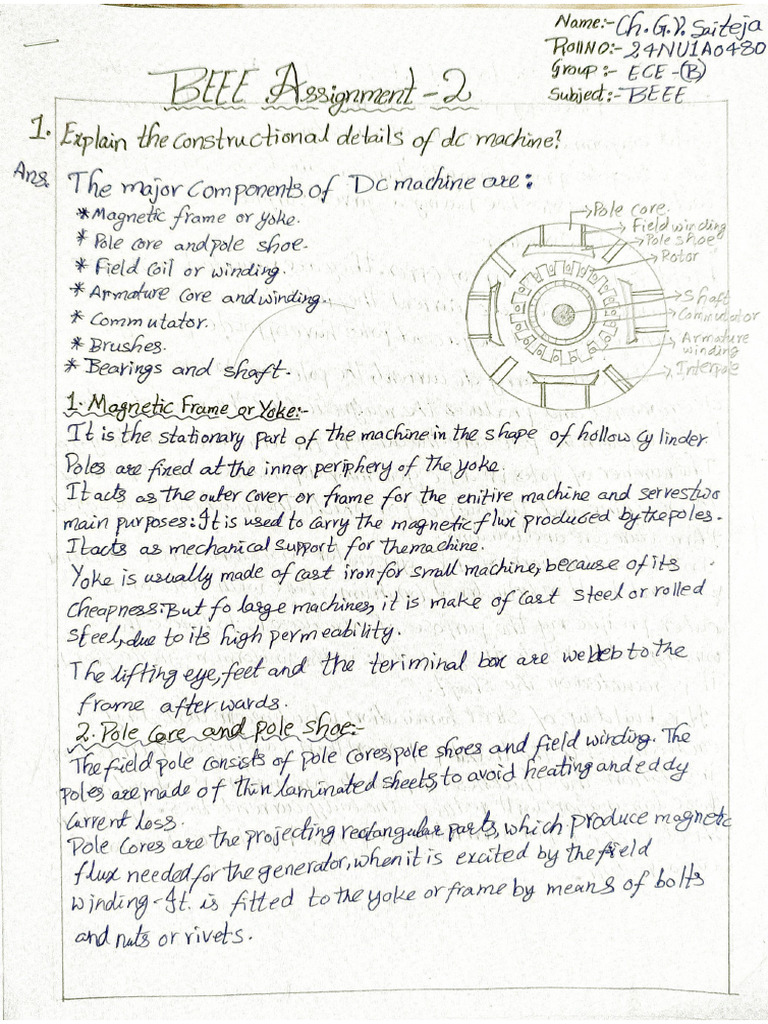 Name:- Ch.G.V. Saiteja
Roll NO:- 24NU1A0480
Group :- ECE-(B)
Subject:- BEEE
BEEE Assignment-2
1. Explain the constructional details of dc machine?
Ans. The major components of Dc machine are:
* Magnetic frame or yoke.
* Pole core and pole shoe.
* Field coil or winding.
* Armature core and winding.
* Commutator.
* Brushes.
* Bearings and shaft.
Pole core.
Field winding
Pole shoe
Rotor
Shaft
Commutator
Armature
winding
Interpole
1. Magnetic Frame or Yoke:-
It is the stationary part of the machine in the shape of hollow cylinder.
Poles are fixed at the inner periphery of the yoke.
It acts as the outer cover or frame for the enitire machine and serves two
main purposes: It is used to carry the magnetic flux produced by the poles.
It acts as mechanical support for the machine.
Yoke is usually made of cast iron for small machine, because of its
cheapness: But fo large machines, it is make of cast steel or rolled
steel, due to its high permeability.
The lifting eye, feet and the teriminal box are to the
frame after wards.
2. Pole Core and pole shoe:-
The field pole consists of pole cores, pole shoes and field winding. The
poles are made of thin laminated sheets, to avoid heating and eddy
current loss.
Pole Cores are the projecting rectangular parts, which produce magnetic
flux needed for the generator, when it is excited by the field
winding-It. is fitted to the yoke or frame by means of bolts
and nuts or rivets.